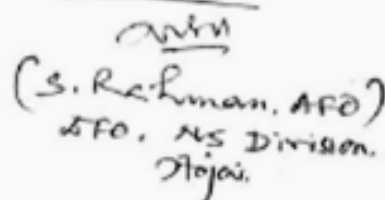 (S. Rahman, AFO)
DFO, NS Division.
Hojai.